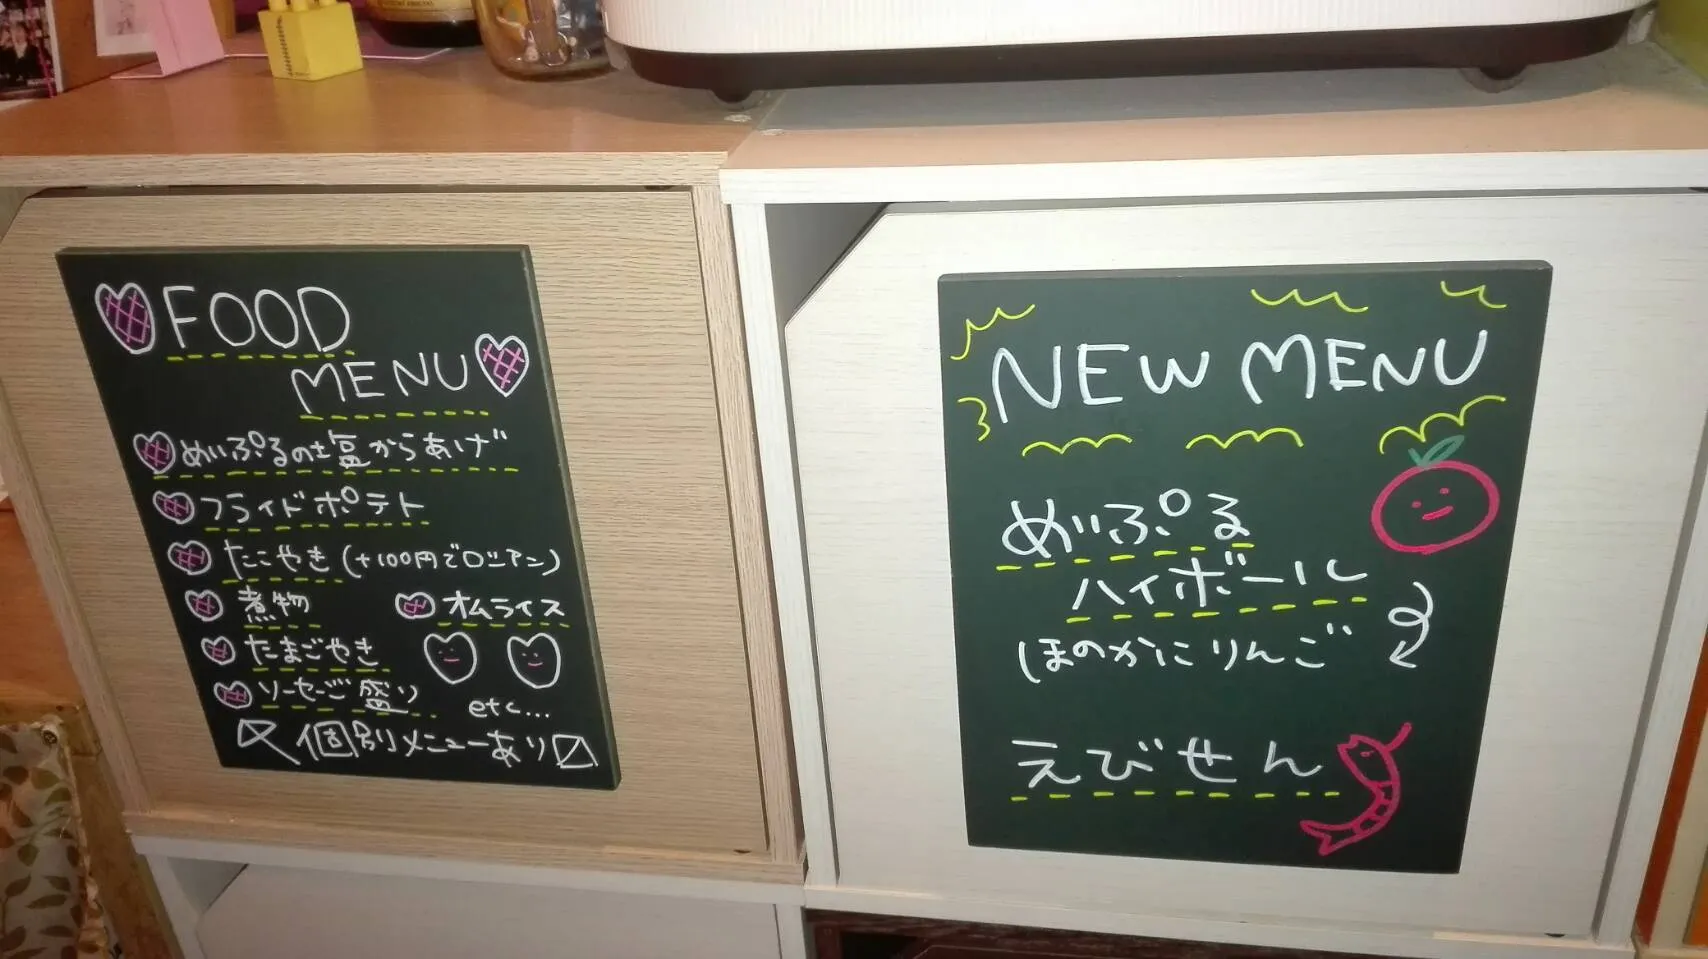 FOOD
MENU
めいぷるの塩からあげ
フライドポテト
たこやき(+100円でロシアン)
煮物
オムライス
たまごやき
ソーセージ盛り
etc...
個別メニューあり
NEW MENU
めいぷる
ハイボール
ほのかにりんご
えびせん